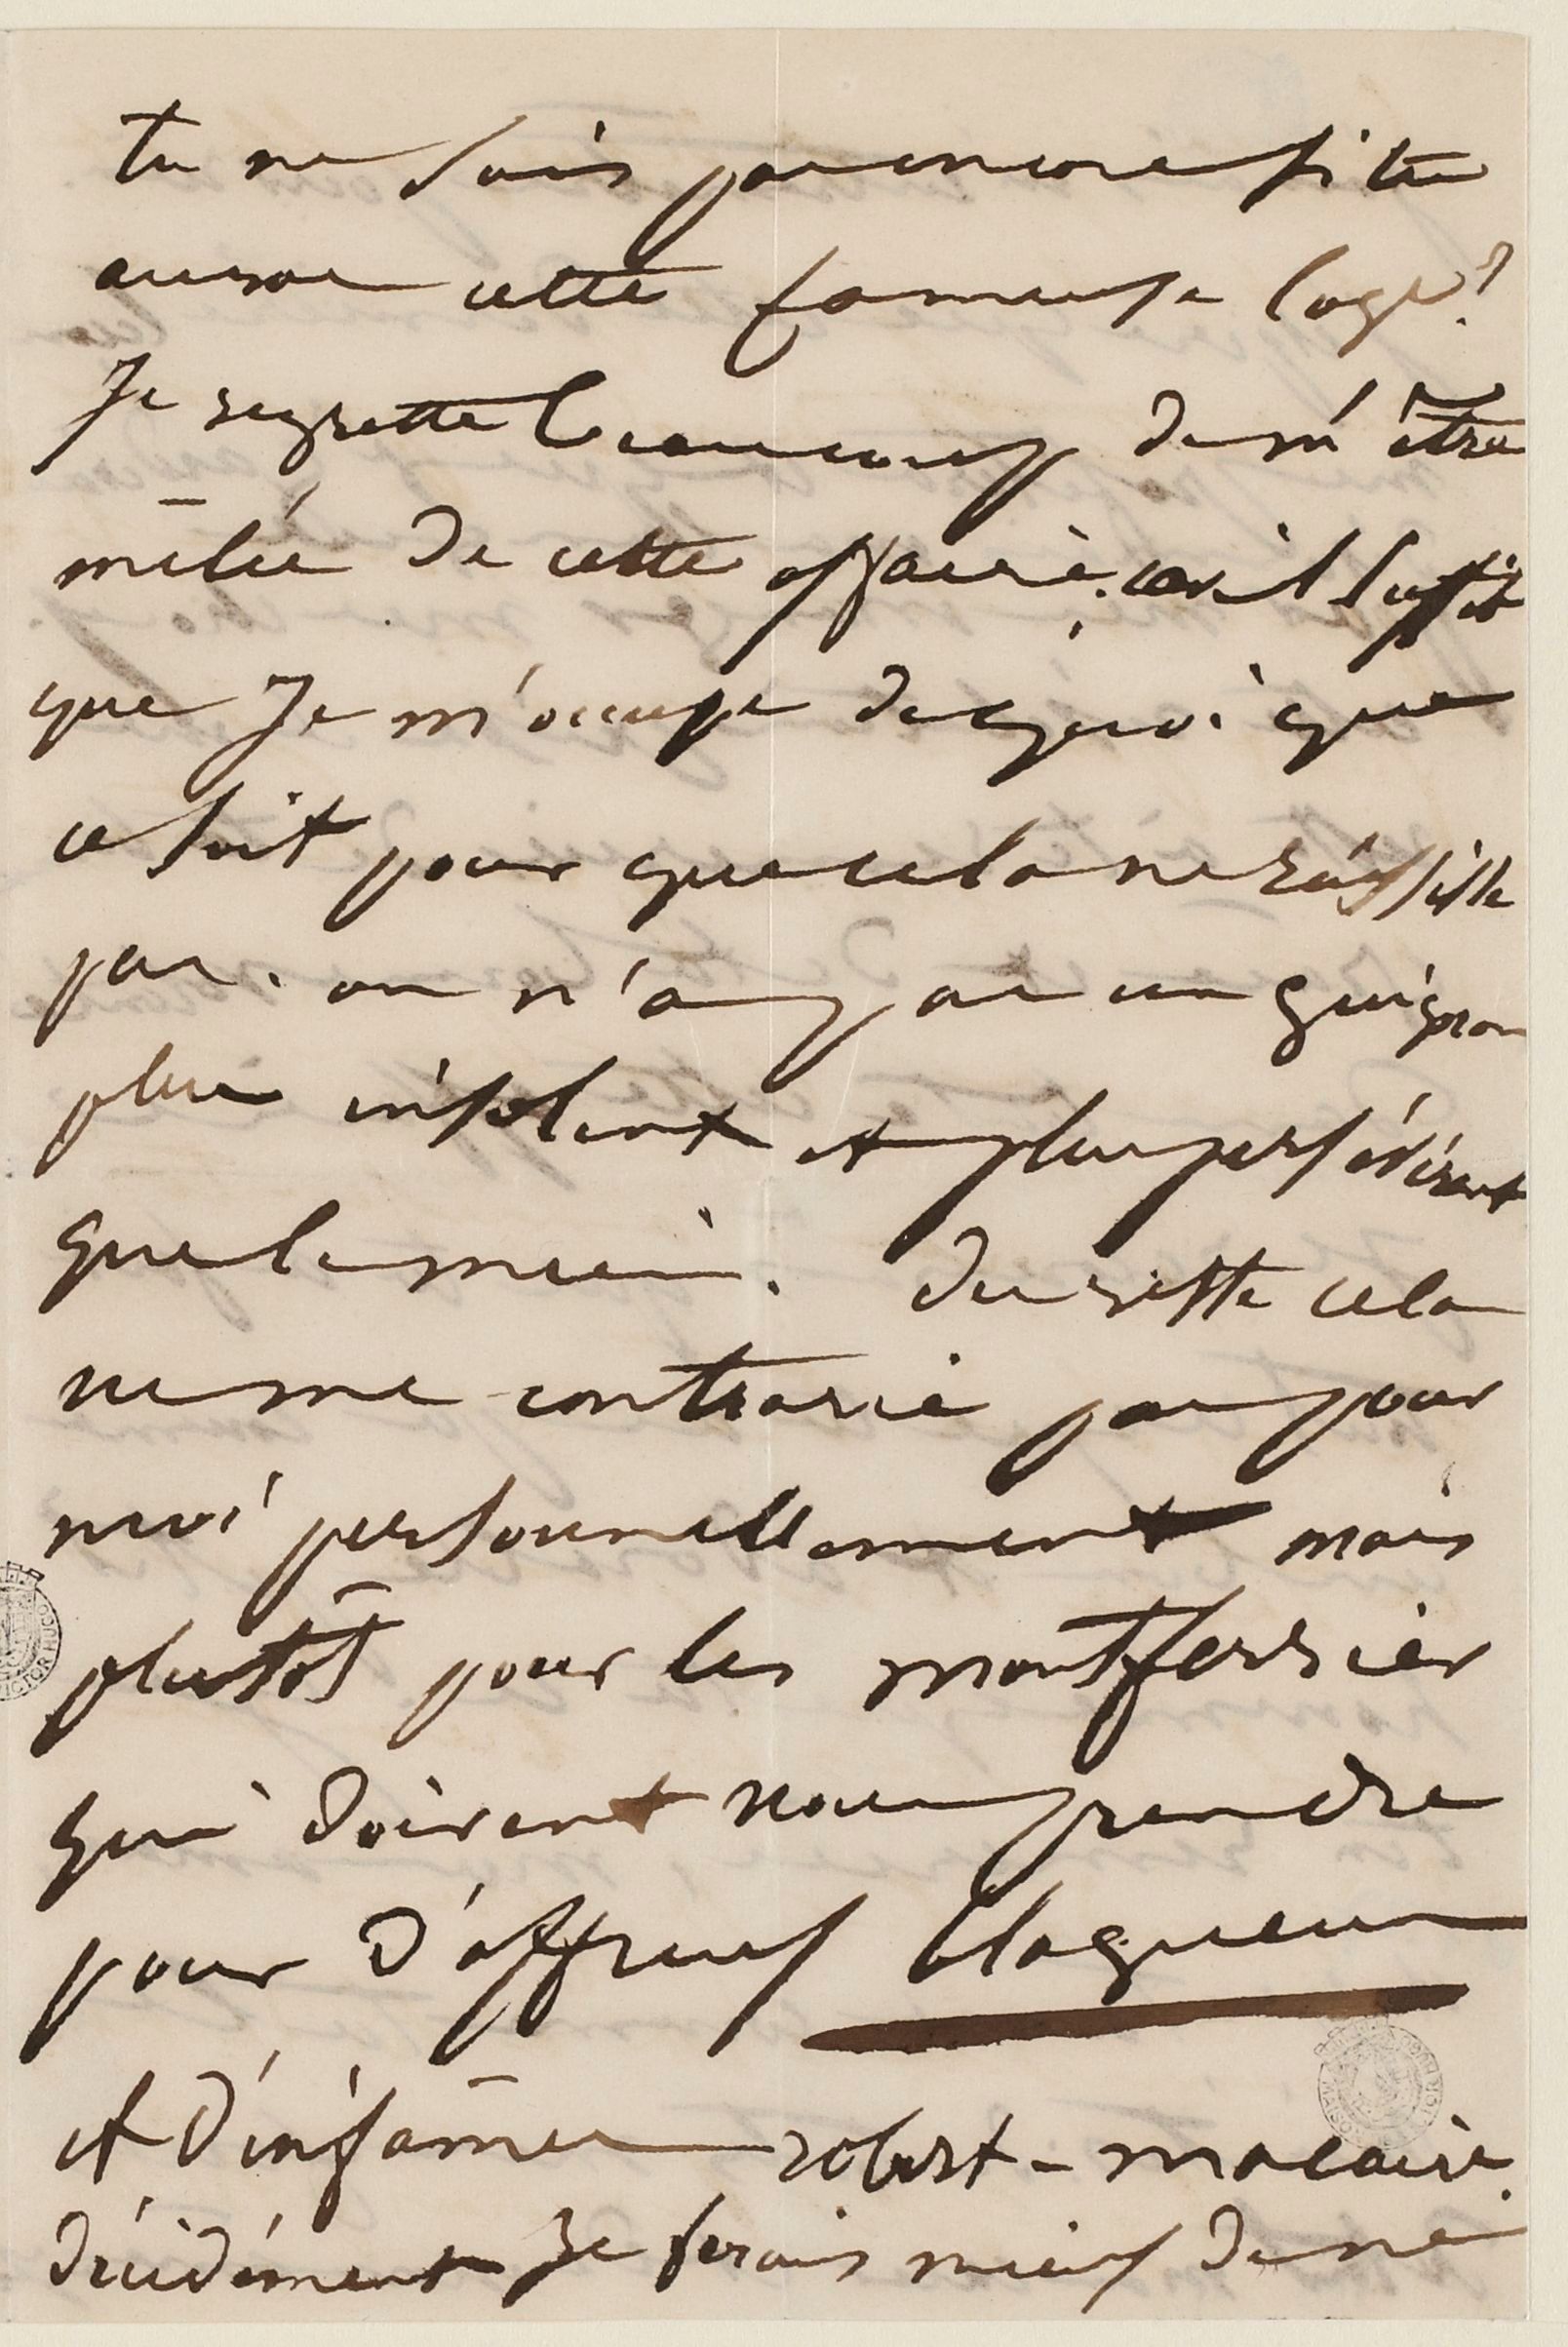 tu ne sais pas encore si tu
auras cette fameuse loge ?
Je regrette beaucoup de m'être
mêlée de cette affaire, car il suffit
que Je m'occupe de quoi que
ce soit pour que cela ne réussisse
pas. on n'a pas un guignon
plus insolent et plus persévérant
que le mien. Du reste cela
ne me contrarie pas pour
moi personnellement mais
plutôt pour les montferrier
qui doivent nous prendre
pour d'affreux blagueurs
et d'infâmes robert-macaire.
décidément Je ferais mieux de ne